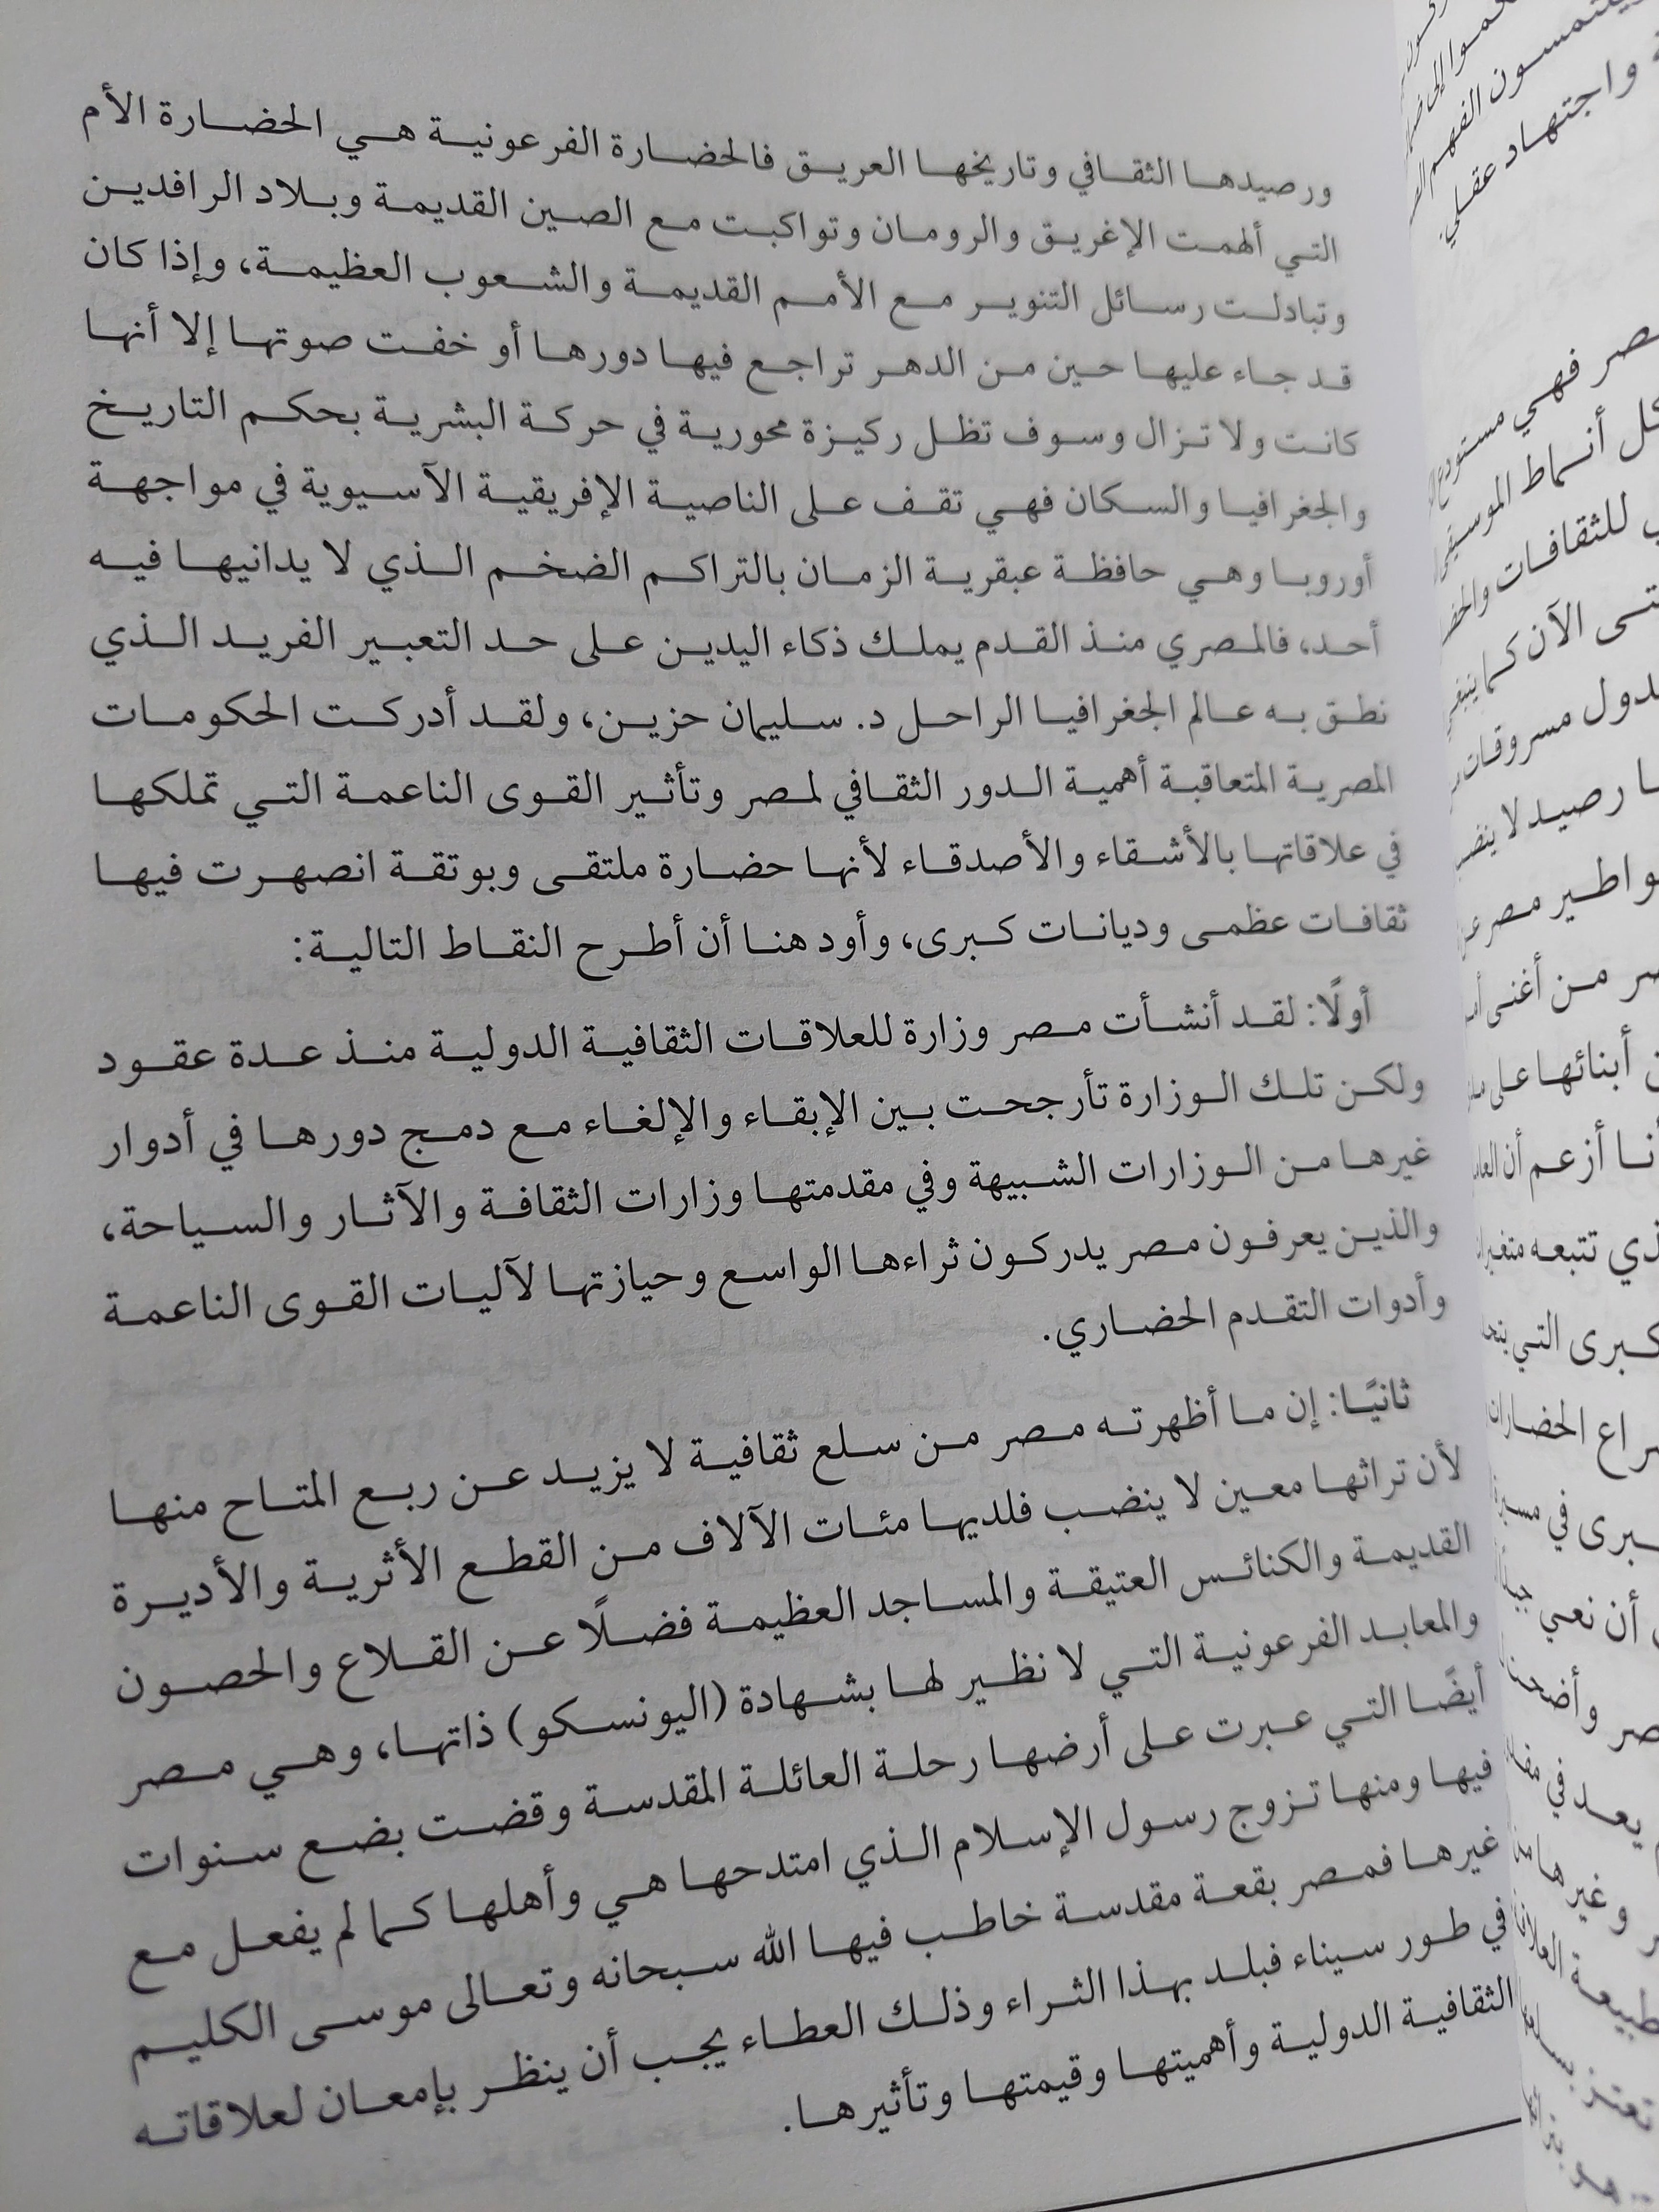 ورصيدها الثقافي وتاريخها العريق فالحضارة الفرعونية هي الحضارة الأم
التي ألهمت الإغريق والرومان وتواكبت مع الصين القديمة وبلاد الرافدين
وتبادلت رسائل التنوير مع الأمم القديمة والشعوب العظيمة، وإذا كان
قد جاء عليها حين من الدهر تراجع فيها دورها أو خفت صوتها إلا أنها
كانت ولا تزال وسوف تظل ركيزة محورية في حركة البشرية بحكم التاريخ
والجغرافيا والسكان فهي تقف على الناصية الإفريقية الآسيوية في مواجهة
أوروبا وهي حافظة عبقرية الزمان بالتراكم الضخم الذي لا يدانيها فيه
أحد، فالمصري منذ القدم يملك ذكاء اليدين على حد التعبير الفريد الذي
نطق به عالم الجغرافيا الراحل د. سليمان حزين، ولقد أدركت الحكومات
المصرية المتعاقبة أهمية الدور الثقافي لمصر وتأثير القوى الناعمة التي تملكها
في علاقاتها بالأشقاء والأصدقاء لأنها حضارة ملتقى وبوتقة انصهرت فيها
ثقافات عظمى وديانات كبرى، وأود هنا أن أطرح النقاط التالية:
أولًا: لقد أنشأت مصر وزارة للعلاقات الثقافية الدولية منذ عدة عقود
ولكن تلك الوزارة تأرجحت بين الإبقاء والإلغاء مع دمج دورها في أدوار
غيرها من الوزارات الشبيهة وفي مقدمتها وزارات الثقافة والآثار والسياحة،
والذين يعرفون مصر يدركون ثراءها الواسع وحيازتها لآليات القوى الناعمة
وأدوات التقدم الحضاري.
ثانيًا: إن ما أظهرته مصر من سلع ثقافية لا يزيد عن ربع المتاح منها
لأن تراثها معين لا ينضب فلديها مئات الآلاف من القطع الأثرية والأديرة
القديمة والكنائس العتيقة والمساجد العظيمة فضلًا عن القلاع والحصون
والمعابد الفرعونية التي لا نظير لها بشهادة (اليونسكو) ذاتها، وهي مصر
أيضًا التي عبرت على أرضها رحلة العائلة المقدسة وقضت بضع سنوات
فيها ومنها تزوج رسول الإسلام الذي امتدحها هي وأهلها كما لم يفعل مع
غيرها فمصر بقعة مقدسة خاطب فيها الله سبحانه وتعالى موسى الكليم
في طور سيناء فبلد بهذا الثراء وذلك العطاء يجب أن ينظر بإمعان لعلاقاته
الثقافية الدولية وأهميتها وقيمتها وتأثيرها.
يلتمسون الفهم
واجتهاد عقلي
فهي مستودع
كل أنماط الموسيقى
للثقافات
الآن كما ينبغي
مسروقات
رصيد لا ينضب
مصر
من أغنى
أبنائها على
أزعم أن
تتبعه
كبرى التي
الحضارات
في
أن نعي
يعد في
وغيرها